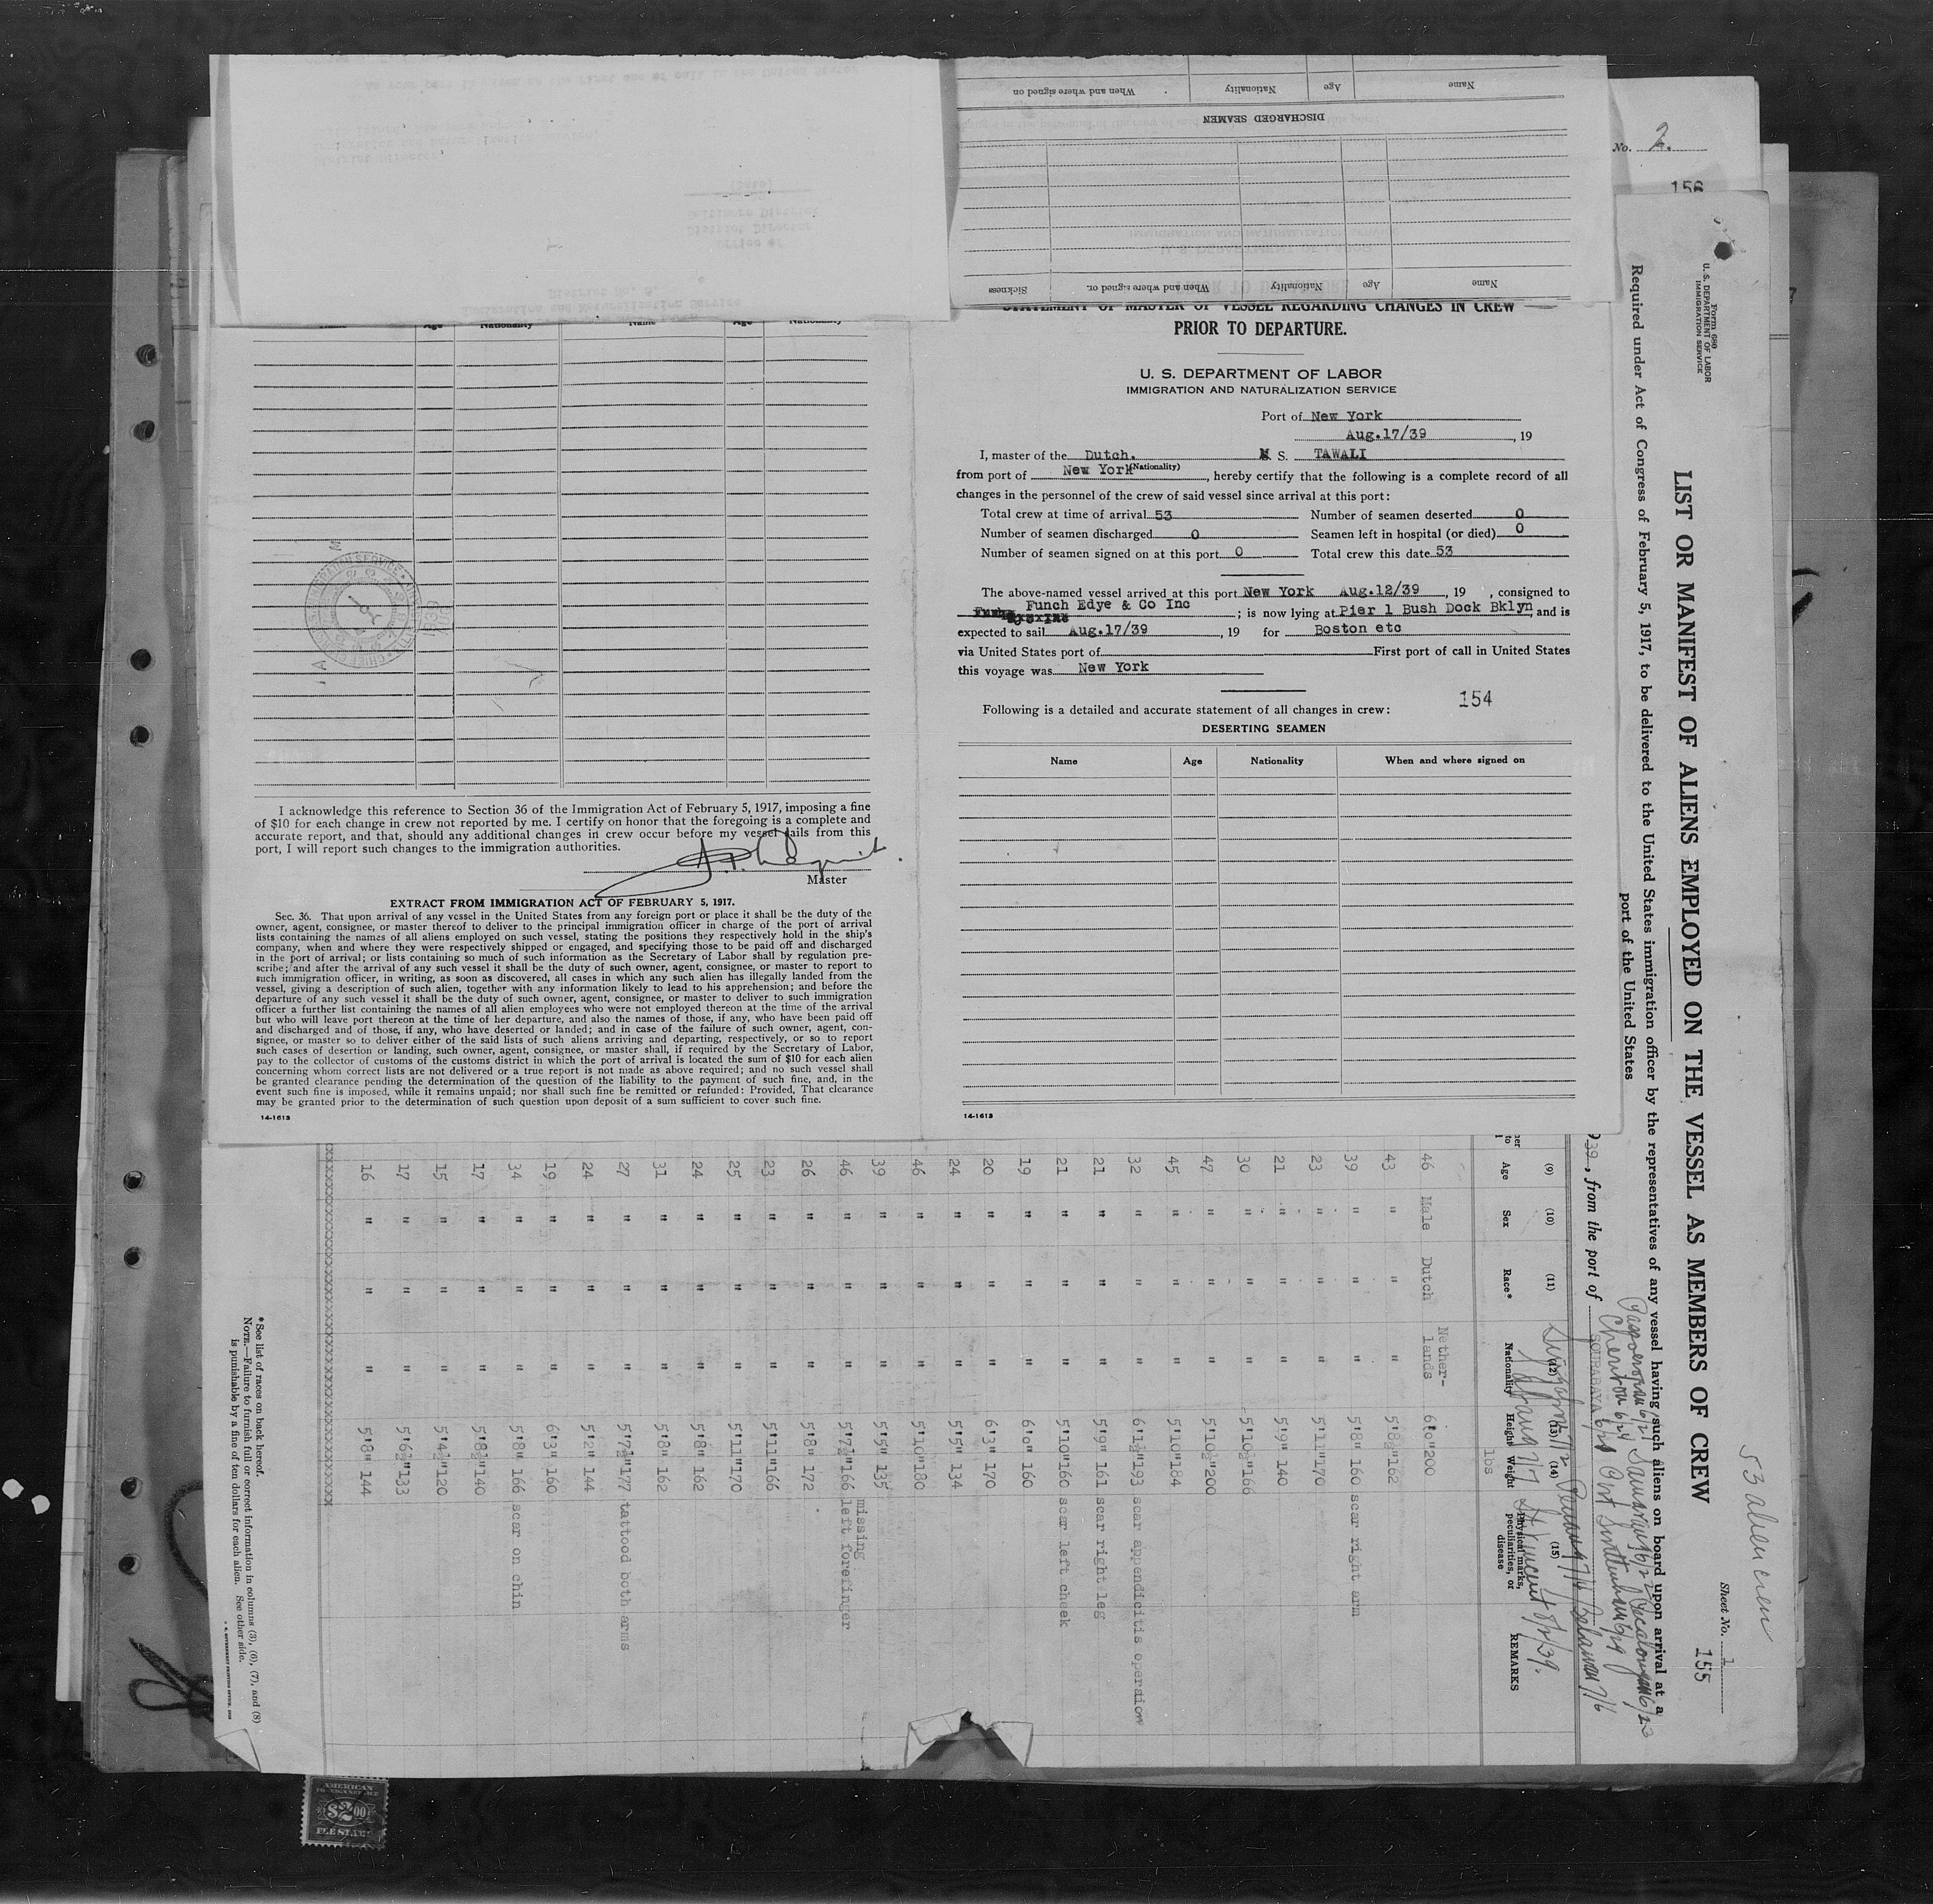 STATEMENT OF MASTER OF VESSEL REGARDING CHANGES IN CREW
PRIOR TO DEPARTURE.
U. S. DEPARTMENT OF LABOR
IMMIGRATION AND NATURALIZATION SERVICE
Port of New York
Aug.17/39, 19
I, master of the Dutch. M S. TAWALI
(Nationality)
from port of New York, hereby certify that the following is a complete record of all
changes in the personnel of the crew of said vessel since arrival at this port:
Total crew at time of arrival 53 Number of seamen deserted 0
Number of seamen discharged 0 Seamen left in hospital (or died) 0
Number of seamen signed on at this port 0 Total crew this date 53
The above-named vessel arrived at this port New York Aug.12/39, 19 , consigned to
Funch Edye & Co Inc ; is now lying at Pier 1 Bush Dock Bklyn, and is
expected to sail Aug.17/39, 19 for Boston etc
via United States port of First port of call in United States
this voyage was New York
154
Following is a detailed and accurate statement of all changes in crew:
DESERTING SEAMEN
Name Age Nationality When and where signed on
14-1613
DISCHARGED SEAMEN
Name Age Nationality When and where signed on
Name Age Nationality When and where signed on Sickness
Name Age Nationality Name Age Nationality
I acknowledge this reference to Section 36 of the Immigration Act of February 5, 1917, imposing a fine
of $10 for each change in crew not reported by me. I certify on honor that the foregoing is a complete and
accurate report, and that, should any additional changes in crew occur before my vessel sails from this
port, I will report such changes to the immigration authorities.
Master
EXTRACT FROM IMMIGRATION ACT OF FEBRUARY 5, 1917.
Sec. 36. That upon arrival of any vessel in the United States from any foreign port or place it shall be the duty of the
owner, agent, consignee, or master thereof to deliver to the principal immigration officer in charge of the port of arrival
lists containing the names of all aliens employed on such vessel, stating the positions they respectively hold in the ship's
company, when and where they were respectively shipped or engaged, and specifying those to be paid off and discharged
in the port of arrival; or lists containing so much of such information as the Secretary of Labor shall by regulation pre-
scribe; and after the arrival of any such vessel it shall be the duty of such owner, agent, consignee, or master to report to
such immigration officer, in writing, as soon as discovered, all cases in which any such alien has illegally landed from the
vessel, giving a description of such alien, together with any information likely to lead to his apprehension; and before the
departure of any such vessel it shall be the duty of such owner, agent, consignee, or master to deliver to such immigration
officer a further list containing the names of all alien employees who were not employed thereon at the time of the arrival
but who will leave port thereon at the time of her departure, and also the names of those, if any, who have been paid off
and discharged and of those, if any, who have deserted or landed; and in case of the failure of such owner, agent, con-
signee, or master so to deliver either of the said lists of such aliens arriving and departing, respectively, or so to report
such cases of desertion or landing, such owner, agent, consignee, or master shall, if required by the Secretary of Labor,
pay to the collector of customs of the customs district in which the port of arrival is located the sum of $10 for each alien
concerning whom correct lists are not delivered or a true report is not made as above required; and no such vessel shall
be granted clearance pending the determination of the question of the liability to the payment of such fine, and, in the
event such fine is imposed, while it remains unpaid; nor shall such fine be remitted or refunded: Provided, That clearance
may be granted prior to the determination of such question upon deposit of a sum sufficient to cover such fine.
14-1613
No. 2.
156
Form 680
U. S. DEPARTMENT OF LABOR
IMMIGRATION SERVICE
53 alien crew
Sheet No. 1
155
LIST OR MANIFEST OF ALIENS EMPLOYED ON THE VESSEL AS MEMBERS OF CREW
Required under Act of Congress of February 5, 1917, to be delivered to the United States immigration officer by the representatives of any vessel having such aliens on board upon arrival at a
port of the United States
39, from the port of SOURABAYA 6/20
Cheribon 6/24
St Vincent 8/2/39.
(9) (10) (11) (12) (13) (14) (15)
Age Sex Race* Nationality Height Weight Physical marks, peculiarities, or disease REMARKS
lbs
46 Male Dutch Nether-lands 6'0" 200
43 " " " 5'8½" 162
39 " " " 5'8" 160 scar right arm
23 " " " 5'11" 170
21 " " " 5'9" 140
30 " " " 5'10½" 166
47 " " " 5'10½" 200
45 " " " 5'10" 184
32 " " " 6'1½" 193 scar appendicitis operaion
21 " " " 5'9" 161 scar right leg
21 " " " 5'10" 160 scar left cheek
19 " " " 6'0" 160
20 " " " 6'3" 170
24 " " " 5'5" 134
46 " " " 5'10" 180
39 " " " 5'5" 135
46 " " " 5'7½" 166 missing left forefinger
26 " " " 5'8" 172
23 " " " 5'11" 166
25 " " " 5'11" 170
24 " " " 5'8" 162
31 " " " 5'8" 162
27 " " " 5'7½" 177 tattood both arms
24 " " " 5'2" 144
19 " " " 6'3" 160
34 " " " 5'8" 166 scar on chin
17 " " " 5'8½" 140
15 " " " 5'4½" 120
17 " " " 5'6½" 133
16 " " " 5'8" 144
*See list of races on back hereof.
NOTE.—Failure to furnish full or correct information in columns (3), (6), (7), and (8)
is punishable by a fine of ten dollars for each alien. See other side.
AMERICAN
$2.00
FEE STAMP